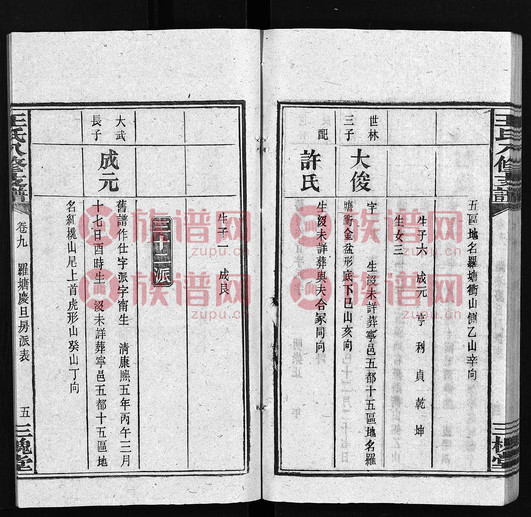 王氏八修支譜
五區地名羅塘衝山側乙山辛向
生子六 成元 亨 利 貞 乾 坤
生女三
世林三子 大俊 字 生沒未詳葬寧邑五都十五區地名羅
塘衝金盆形底下巳山亥向
配 許氏 生沒未詳葬與夫合冢同向
生子一 成良
三十二派
大武長子 成元 舊譜作仕字派字南生 清康熙五年丙午三月
十七日酉時生 沒未詳葬寧邑五都十五區地
名紅機山足上首虎形山癸山丁向
王氏八修支譜
卷九 羅塘慶旦房派表
五
三槐堂
三槐堂
族譜网
zupu.cn